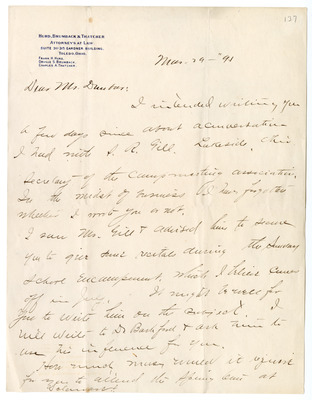 127
HURD, BRUMBACK & THATCHER
ATTORNEYS AT LAW
SUITE 30-37 GARDNER BUILDING,
TOLEDO, OHIO.
FRANK H. HURD,
ORVILLE S. BRUMBACK,
CHARLES A. THATCHER.
Mar. 29 -
Dear Mr. Dunbar:
I intended writing you
a few days since about a conversation
I had with S. R. Gill, Lakeside, Ohio
Secretary of the campmeeting association.
In the midst of business I have forgotten
whether I wrote you or not.
I saw Mr. Gill & advised him to secure
you to give some recitals during the Sunday
School Encampment, which I believe comes
off in July. It might be well for
you to write him on the subject. I
will write to Dr Bashford & ask him to
use his influence for you.
How much money would it require
for you to attend the Spring term at
Delaware?